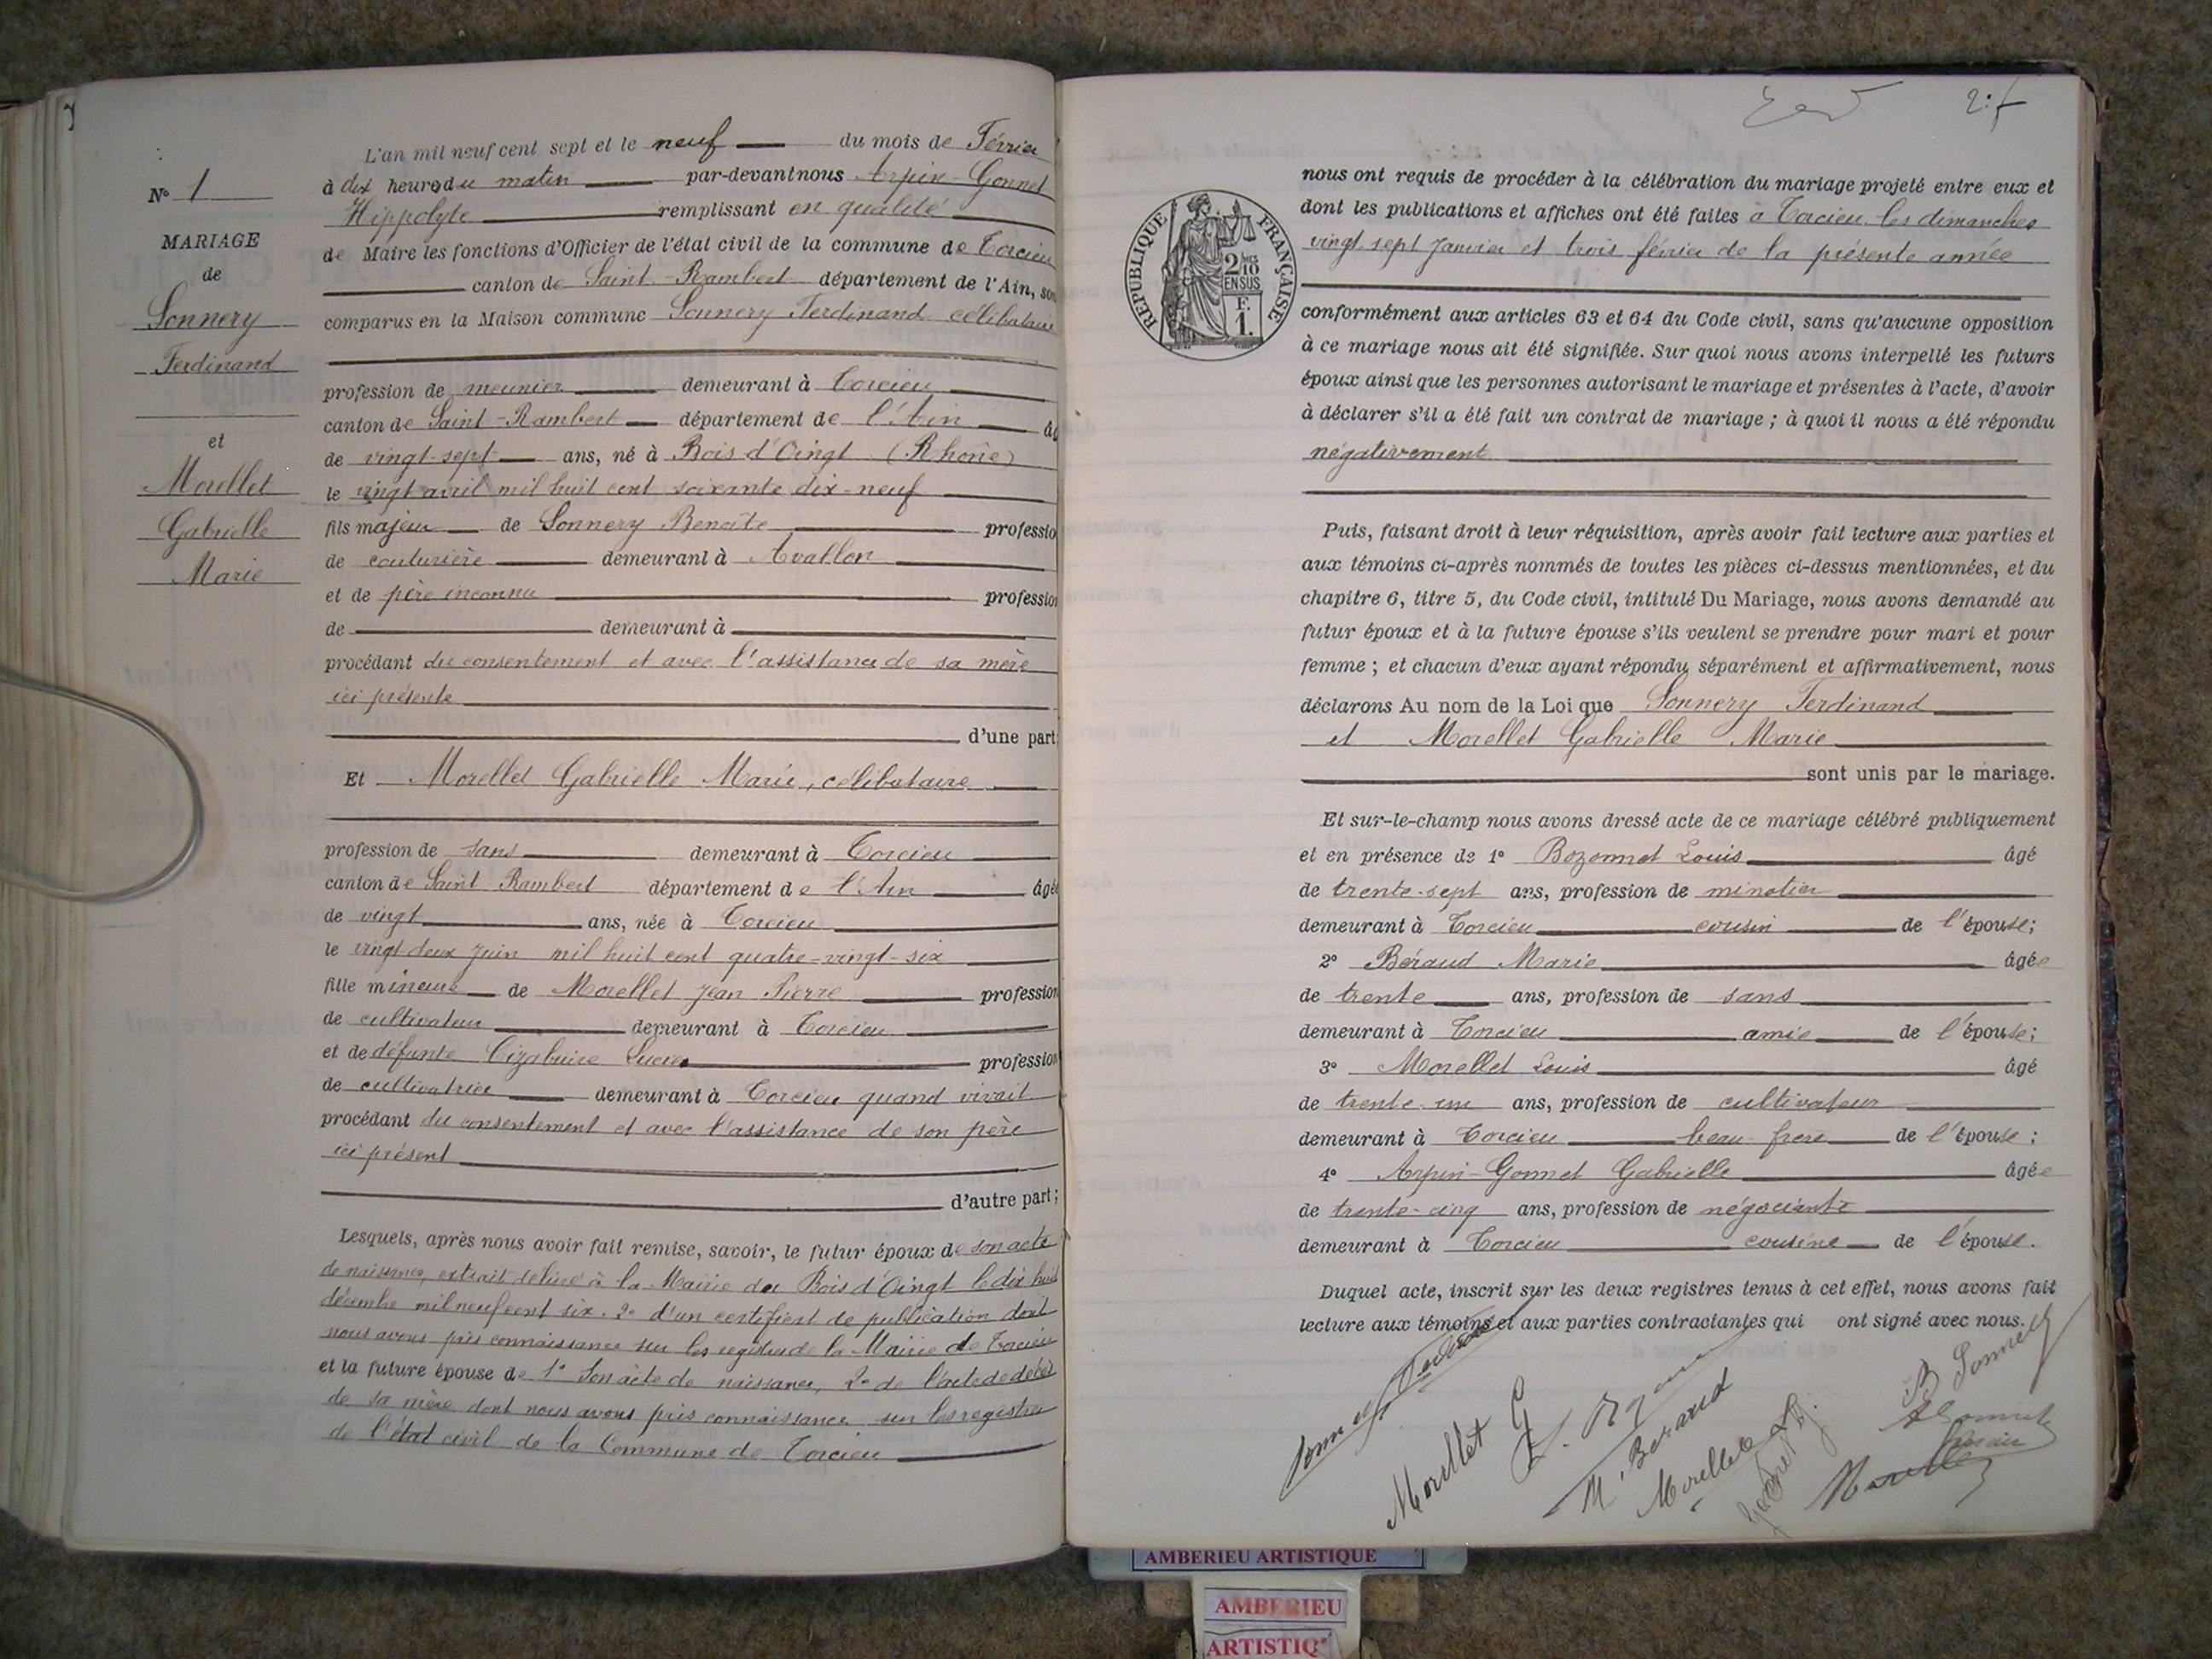 N° 1
MARIAGE
de
Sonnery
Ferdinand
et
Morellet
Gabrielle
Marie
L'an mil neuf cent sept et le neuf du mois de Février
à dix heures du matin par-devant nous Arpin-Gonnet
Hippolyte remplissant en qualité
de Maire les fonctions d'Officier de l'état civil de la commune de Torcieu
canton de Saint-Rambert département de l'Ain, so
comparus en la Maison commune Sonnery Ferdinand célibataire
profession de meunier demeurant à Torcieu
canton de Saint-Rambert département de l'Ain âg
de vingt-sept ans, né à Bois d'Oingt (Rhône)
le vingt avril mil huit cent soixante dix-neuf
fils majeur de Sonnery Benoîte professio
de couturière demeurant à Avallon
et de père inconnu profession
de demeurant à
procédant du consentement et avec l'assistance de sa mère
ici présente
d'une part;
Et Morellet Gabrielle Marie, célibataire
profession de sans demeurant à Torcieu
canton de Saint Rambert département de l'Ain âgée
de vingt ans, née à Torcieu
le vingt deux juin mil huit cent quatre-vingt-six
fille mineure de Morellet Jean Pierre profession
de cultivateur demeurant à Torcieu
et de défunte Tizabuire Lucie profession
de cultivatrice demeurant à Torcieu quand vivait
procédant du consentement et avec l'assistance de son père
ici présent
d'autre part;
Lesquels, après nous avoir fait remise, savoir, le futur époux de son acte
de naissance, extrait délivré à la Mairie du Bois d'Oingt le dix huit
décembre mil neuf cent six. 2° d'un certificat de publication dont
nous avons pris connaissance sur les registres de la Mairie de Torcieu
et la future épouse de 1° Son acte de naissance, 2° de l'acte de décès
de sa mère dont nous avons pris connaissance sur les registres
de l'état civil de la Commune de Torcieu
RÉPUBLIQUE FRANÇAISE
2/10
EN SUS
F.
1.
nous ont requis de procéder à la célébration du mariage projeté entre eux et
dont les publications et affiches ont été faites à Torcieu les dimanches
vingt sept janvier et trois février de la présente année
conformément aux articles 63 et 64 du Code civil, sans qu'aucune opposition
à ce mariage nous ait été signifiée. Sur quoi nous avons interpellé les futurs
époux ainsi que les personnes autorisant le mariage et présentes à l'acte, d'avoir
à déclarer s'il a été fait un contrat de mariage ; à quoi il nous a été répondu
négativement
Puis, faisant droit à leur réquisition, après avoir fait lecture aux parties et
aux témoins ci-après nommés de toutes les pièces ci-dessus mentionnées, et du
chapitre 6, titre 5, du Code civil, intitulé Du Mariage, nous avons demandé au
futur époux et à la future épouse s'ils veulent se prendre pour mari et pour
femme ; et chacun d'eux ayant répondu séparément et affirmativement, nous
déclarons Au nom de la Loi que Sonnery Ferdinand
et Morellet Gabrielle Marie
sont unis par le mariage.
Et sur-le-champ nous avons dressé acte de ce mariage célébré publiquement
et en présence de 1° Bozonnet Louis âgé
de trente-sept ans, profession de minotier
demeurant à Torcieu cousin de l'épouse;
2° Béraud Marie âgée
de trente ans, profession de sans
demeurant à Torcieu amie de l'épouse;
3° Morellet Louis âgé
de trente-un ans, profession de cultivateur
demeurant à Torcieu beau-frère de l'épouse ;
4° Arpin-Gonnet Gabrielle âgée
de trente-cinq ans, profession de négociante
demeurant à Torcieu cousine de l'épouse.
Duquel acte, inscrit sur les deux registres tenus à cet effet, nous avons fait
lecture aux témoins et aux parties contractantes qui ont signé avec nous.
Morellet G
M. Beraud
Morellet
B Sonnery
Morellet
AMBERIEU ARTISTIQUE
AMBERIEU
ARTISTIQ